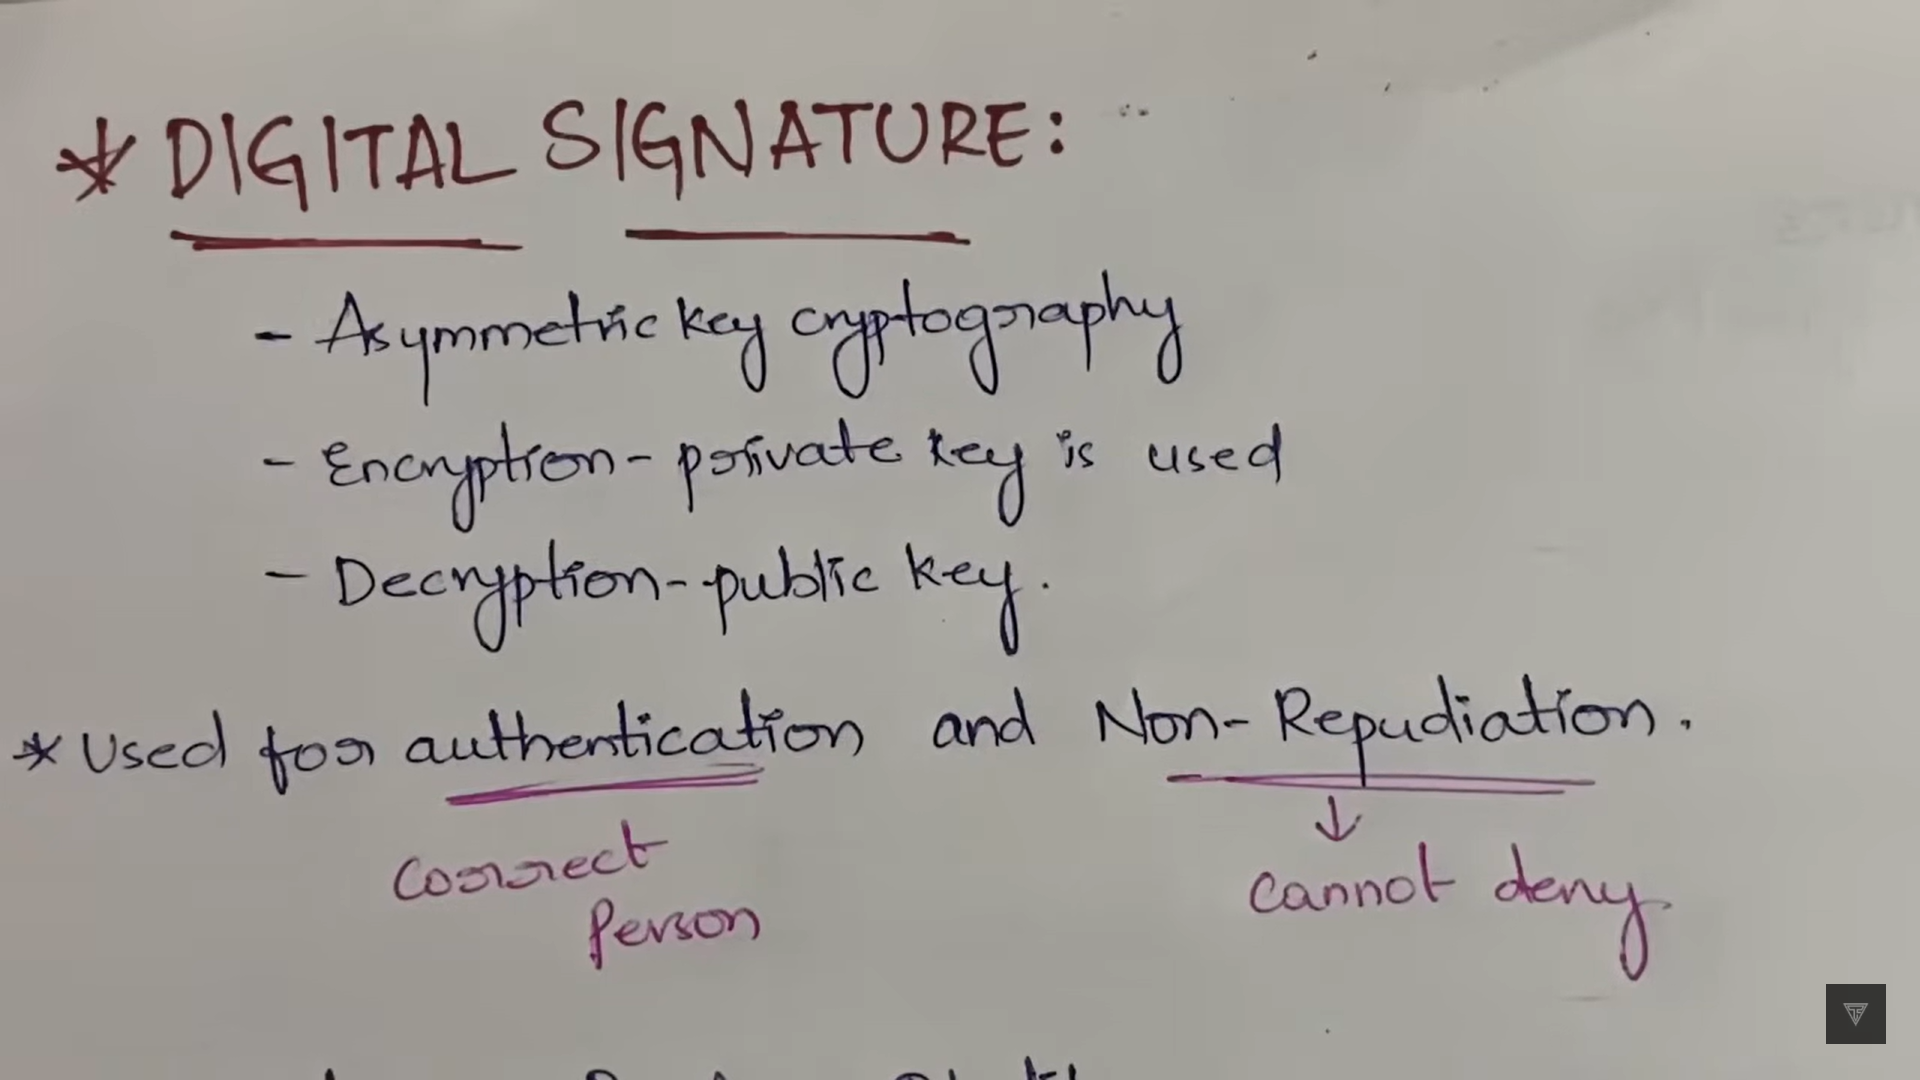 * DIGITAL SIGNATURE:
- Asymmetric key cryptography
- Encryption - private key is used
- Decryption - public key.
* Used for authentication and Non-Repudiation.
↓
Correct
Person
cannot deny